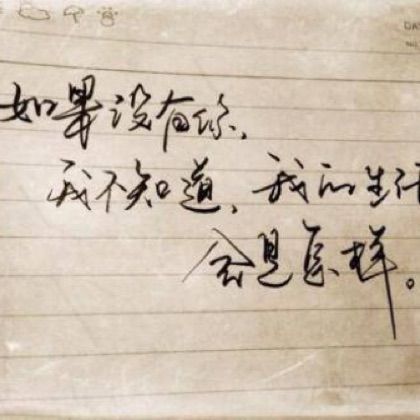 DA
NO
如果没有你,
我不知道,我的生活
会是怎样。